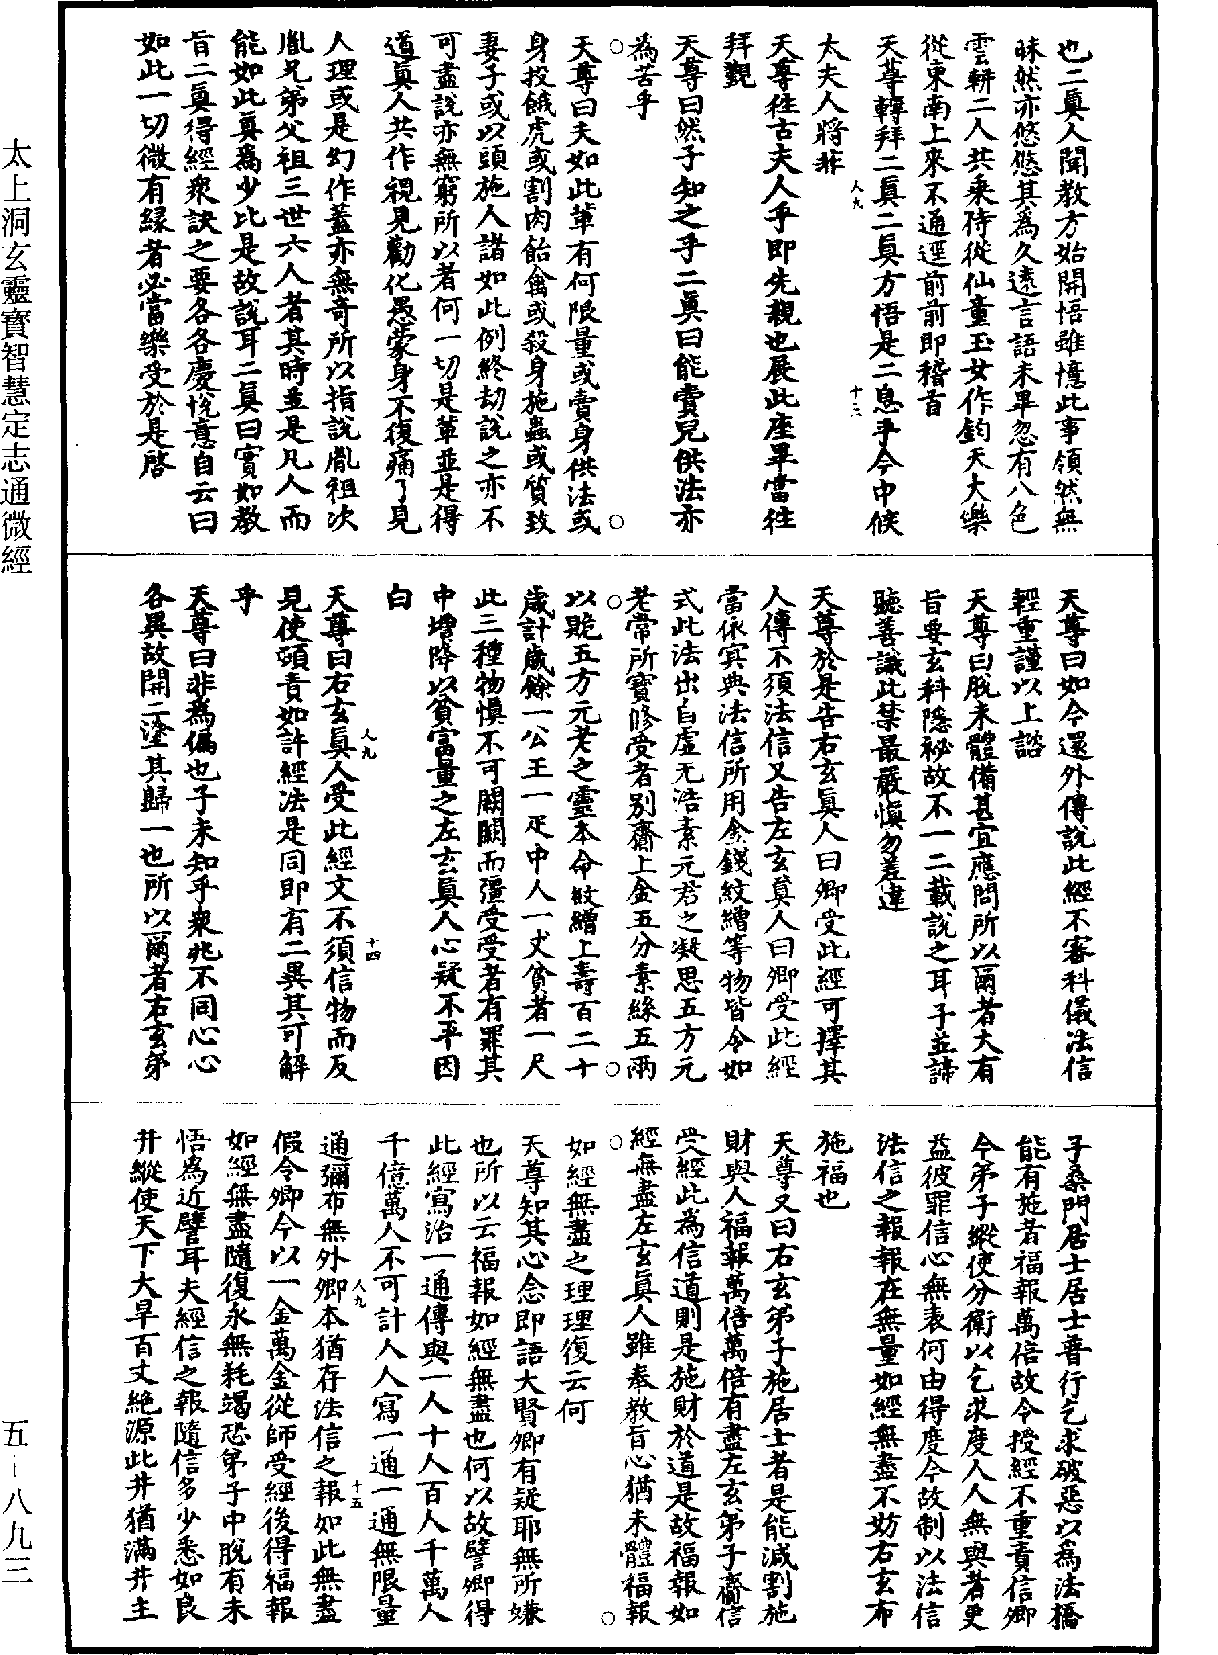 也二眞人聞教方始開悟雖憶此事領然無
昧然亦悠悠其爲久遠言語未畢忽有八色
雲軿二人共乘侍從仙童玉女作鈞天大樂
從東南上來不通逕前前即稽首
天尊轉拜二眞二眞方悟是二息乎今中候
太夫人將非
人九
十三
天尊往古夫人乎即先親也展此座畢當往
拜覲
天尊曰然子知之乎二眞曰能賣兒供法亦
為苦乎
天尊曰夫如此輩有何限量或賣身供法或
身投餓虎或割肉飴禽或殺身施蟲或質致
妻子或以頭施人諸如此例終劫說之亦不
可盡說亦無窮所以者何一切是輩並是得
道眞人共作視見勸化愚蒙身不復痛了見
人理或是幻作蓋亦無奇所以指說胤祖次
胤兄弟父祖三世六人者其時並是凡人而
能如此眞爲少比是故說耳二眞曰實如教
旨二眞得經衆訣之要各各慶悅意自云曰
如此一切微有緣者必當樂受於是啓
天尊曰如今還外傳說此經不審科儀法信
輕重謹以上諮
天尊曰脫未體備甚宜應問所以爾者大有
旨要玄科隱祕故不一二載說之耳子並諦
聽善識此禁最嚴慎勿差違
天尊於是告右玄眞人曰卿受此經可擇其
人傳不須法信又告左玄眞人曰卿受此經
當依冥典法信所用金錢紋繒等物皆令如
式此法出自虛无浩素元君之凝思五方元
老常所寶修受者別齋上金五分素絲五兩
以贍五方元老之靈本命紋繒上壽百二十
歲計歲餘一公王一疋中人一丈貧者一尺
此三種物慎不可闕闕而彊受受者有罪其
中增降以貧富量之左玄眞人心疑不平因
白
天尊曰右玄眞人受此經文不須信物而反
人九
十四
見使頭責如許經法是同即有二異其可解
乎
天尊曰非爲偏也子未知乎衆兆不同心心
各異故開二塗其歸一也所以爾者右玄弟
子桑門居士居士普行乞求破惡以爲法橋
能有施者福報萬倍故令授經不重責信卿
今弟子縱使分衛以乞求度人人無與者更
益彼罪信心無表何由得度今故制以法信
法信之報報在無量如經無盡不妨右玄布
施福也
天尊又曰右玄弟子施居士者是能減割施
財與人福報萬倍萬倍有盡左玄弟子齎信
受經此為信道則是施財於道是故福報如
經無盡左玄眞人雖奉教旨心猶未體福報
如經無盡之理理復云何
天尊知其心念即語大賢卿有疑耶無所嫌
也所以云福報如經無盡也何以故譬卿得
此經寫治一通傳與一人十人百人千萬人
千億萬人不可計人人寫一通一通無限量
通彌布無外卿本猶存法信之報如此無盡
人九
十五
假令卿今以一金萬金從師受經後得福報
如經無盡隨復永無耗竭恐弟子中脫有未
悟爲近譬耳夫經信之報隨信多少悉如良
井縱使天下大旱百丈絶源此井猶滿井主
太上洞玄靈寶智慧定志通微經
五－八九三